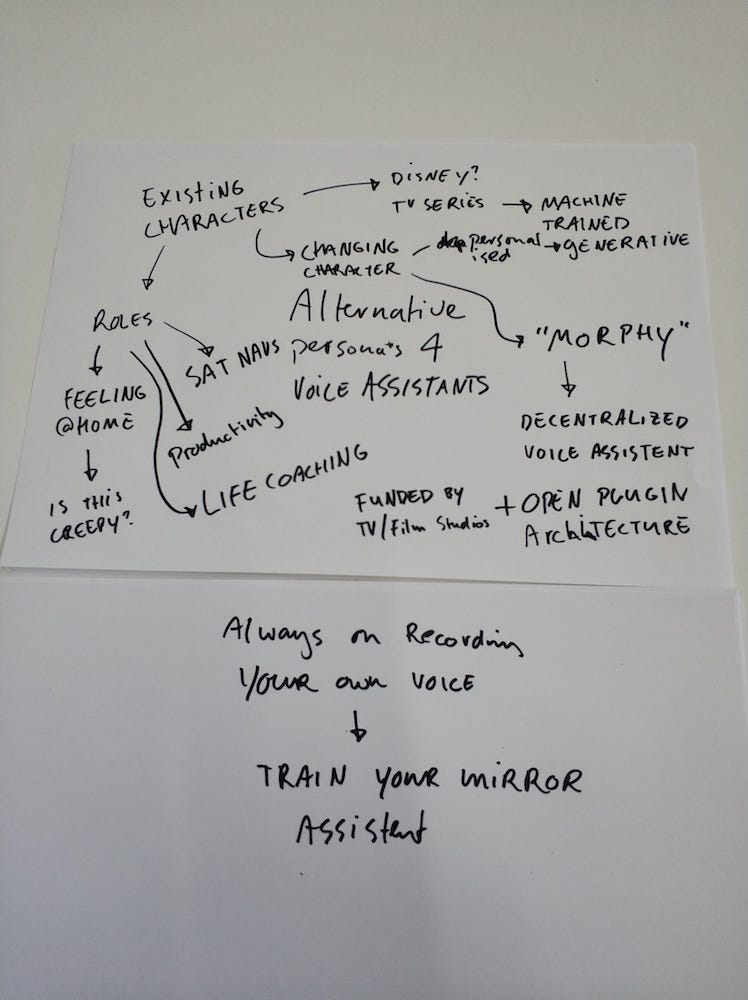 Existing
CHARACTERS
DISNEY?
TV SERIES
MACHINE
TRAINED
GENERATIVE
CHANGING
CHARACTER
personal
ised
Alternative
persona's 4
VOICE ASSISTANTS
ROLES
SAT NAVS
FEELING
@HOME
Productivity
IS THIS
CREEPY?
LIFE COACHING
"MORPHY"
DECENTRALIZED
VOICE ASSISTENT
FUNDED BY
TV/Film Studios
+ OPEN PLUGIN
ArchiTECTURE
Always on Recording
YOUR own VOICE
TRAIN YOUR MIRROR
Assistent